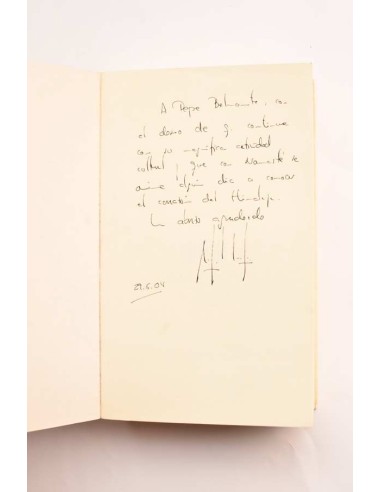 A Pepe Belmonte, con
el deseo de q continue
con su magnífica actividad
cultural y que se
anime algún día a conocer
el corazón del
Un abrazo agradecido
29.6.04